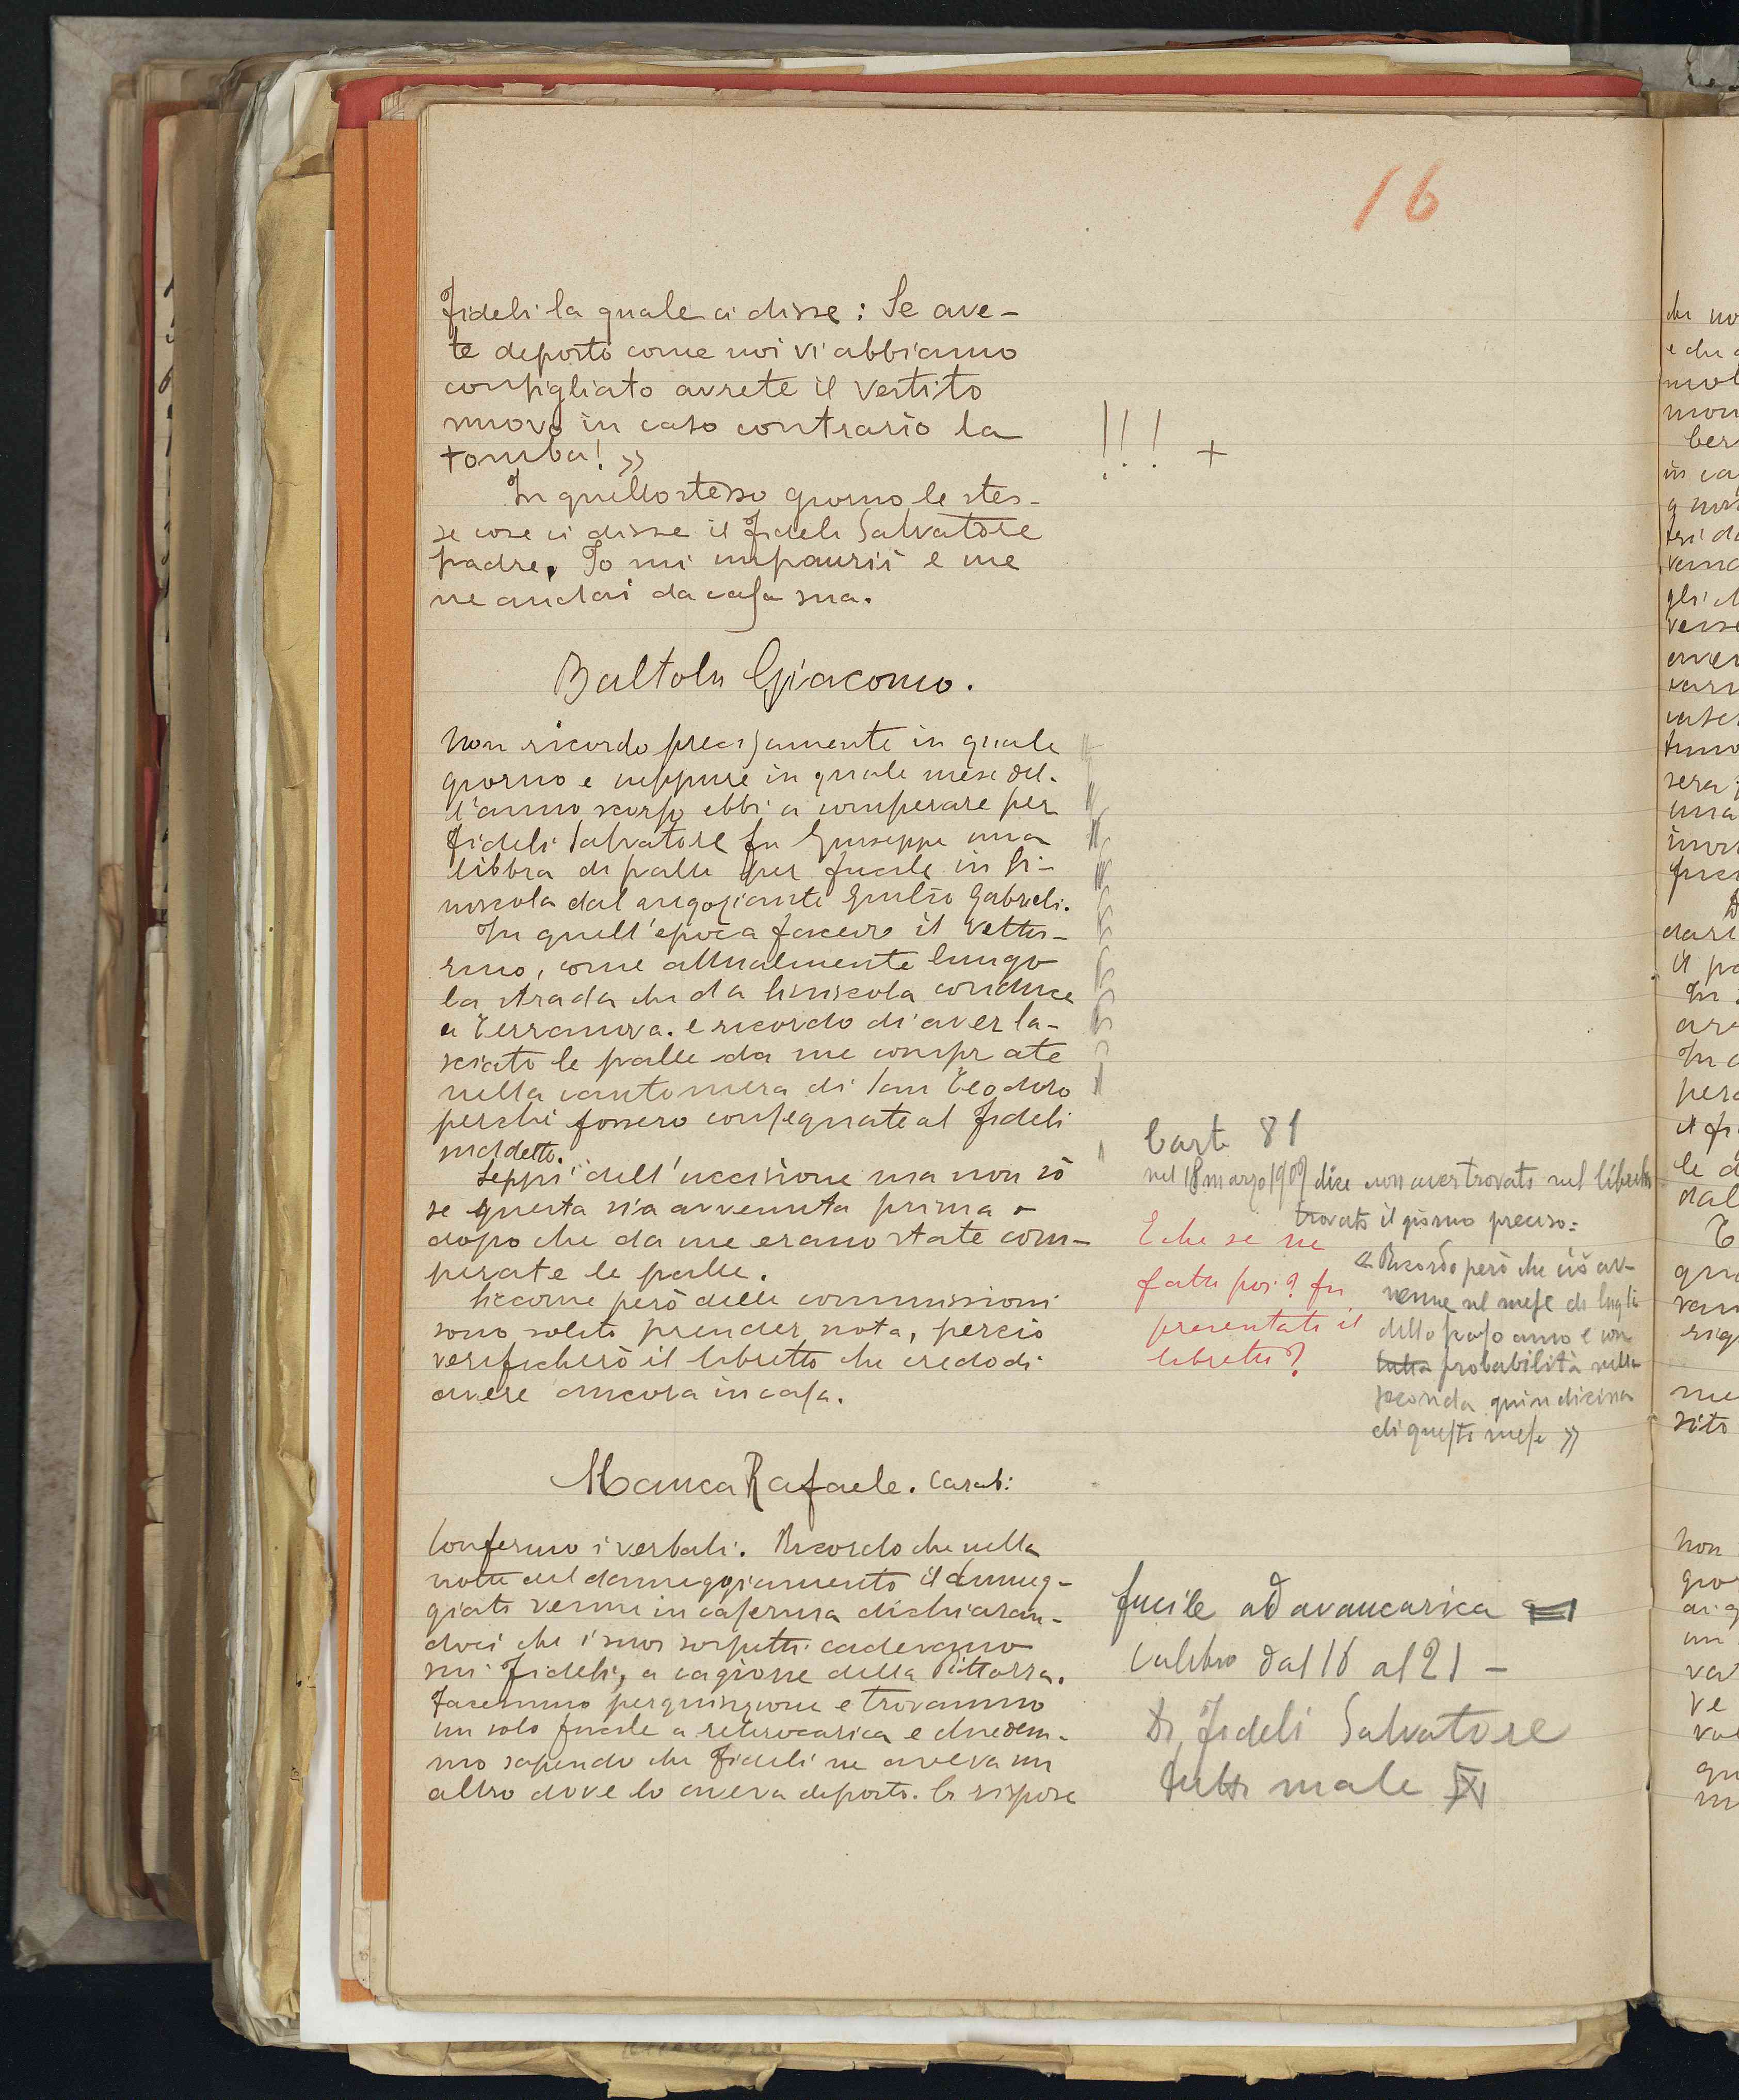 16
Fideli la quale ci disse: Se ave-
te deposto come noi vi abbiamo
consigliato avrete il vestito
nuovo in caso contrario la
tomba! »
!!! +
In quello stesso giorno le stes-
se cose ci disse il Fideli Salvatore
padre. Io mi impaurii e me
ne andai da casa sua.
Baltolu Giacomo.
Non ricordo precisamente in quale
giorno e neppure in quale mese del-
l'anno scorso ebbi a comperare per
Fideli Salvatore fu Giuseppe una
libbra di palle per fucile in Si-
niscola dal negoziante Giulio Gabrieli.
In quell'epoca facevo il vettu-
rino, come attualmente lungo
la strada che da Siniscola conduce
a Terranova. e ricordo di aver la-
sciato le palle da me comprate
nella cantoniera di San Teodoro
perchè fossero consegnate al Fideli
suddetto.
Seppi dell'uccisione ma non sò
se questa sia avvenuta prima o
dopo che da me erano state com-
perate le palle.
Siccome però delle commissioni
sono solito prender nota, perciò
verificherò il libretto che credo di
avere ancora in casa.
Carte 81
nel 18 marzo 1909 dice non aver trovato nel libretto
trovato il giorno preciso:
« Ricordo però che ciò av-
venne nel mese di luglio
dello scorso anno e con
tutta probabilità nella
seconda quindicina
di questo mese »
E che se ne
fatto poi? fu
presentato il
libretto?
Manca Rafaele. Carab:
Confermo i verbali. Ricordo che nella
notte del danneggiamento il danneg-
giato venne in caserma dichiaran-
doci che i suoi sospetti cadevano
sui Fideli, a cagione della Pittorra.
Facemmo perquisizione e trovammo
un solo fucile a retrocarica e chiedem-
mo sapendo che Fideli ne aveva un
altro dove lo aveva deposto. Ci rispose
fucile ad avancarica
Calibro dal 16 al 21 -
Di Fideli Salvatore
tutti male